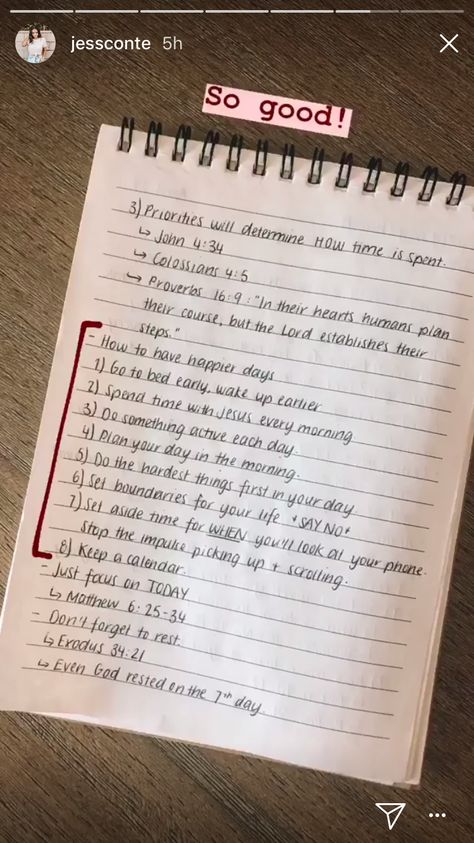 jessconte 5h
So good!
3) Priorities will determine HOW time is spent.
↳ John 4:34
↳ Colossians 4:5
↳ Proverbs 16:9: "In their hearts humans plan
their course, but the Lord establishes their
steps."
- How to have happier days
1) Go to bed early, wake up earlier
2) Spend time with Jesus every morning
3) Do something active each day.
4) Plan your day in the morning.
5) Do the hardest things first in your day
6) Set boundaries for your life *SAY NO*
7) Set aside time for WHEN you'll look at your phone.
Stop the impulse picking up + scrolling.
8) Keep a calendar.
- Just focus on TODAY
↳ Matthew 6:25-34
- Don't forget to rest.
↳ Exodus 34:21
↳ Even God rested on the 7th day